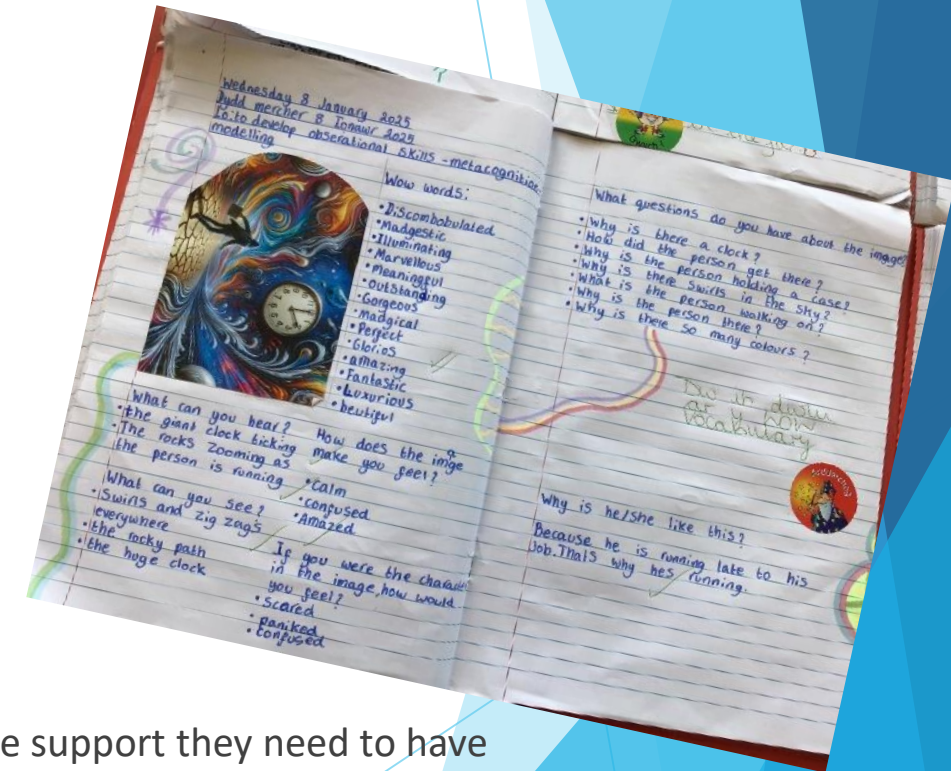 Wednesday 8 January 2025
Dydd mercher 8 Ionawr 2025
Io:to develop obserational skills - metacognition
modelling
Wow words:
• Discombobulated
• Madgestic
• Illuminating
• Marvellous
• meaningful
• outstanding
• Gorgeous
• madgical
• Perfect
• Glorios
• amazing
• Fantastic
• Luxurious
• beutiful
What can you hear?
• the giant clock ticking
• The rocks zooming as
the person is running
What can you see?
• Swirls and zig zag's
everywhere
• the rocky path
• the huge clock
How does the imge
a
make you feel?
• calm
• confused
• Amazed
If you were the charact
in the image, how would
you feel?
• scared
• paniked
• confused
What questions do you have about the image?
• Why is there a clock?
• How did the person get there?
• Why is the person holding a case?
• Why is there swirls in the sky?
• What is the person walking on?
• Why is the person there?
• Why is there so many colours?
WOW
vocabulary
Why is he/she like this?
Because he is running late to his
Job. Thats why hes running.
e support they need to have